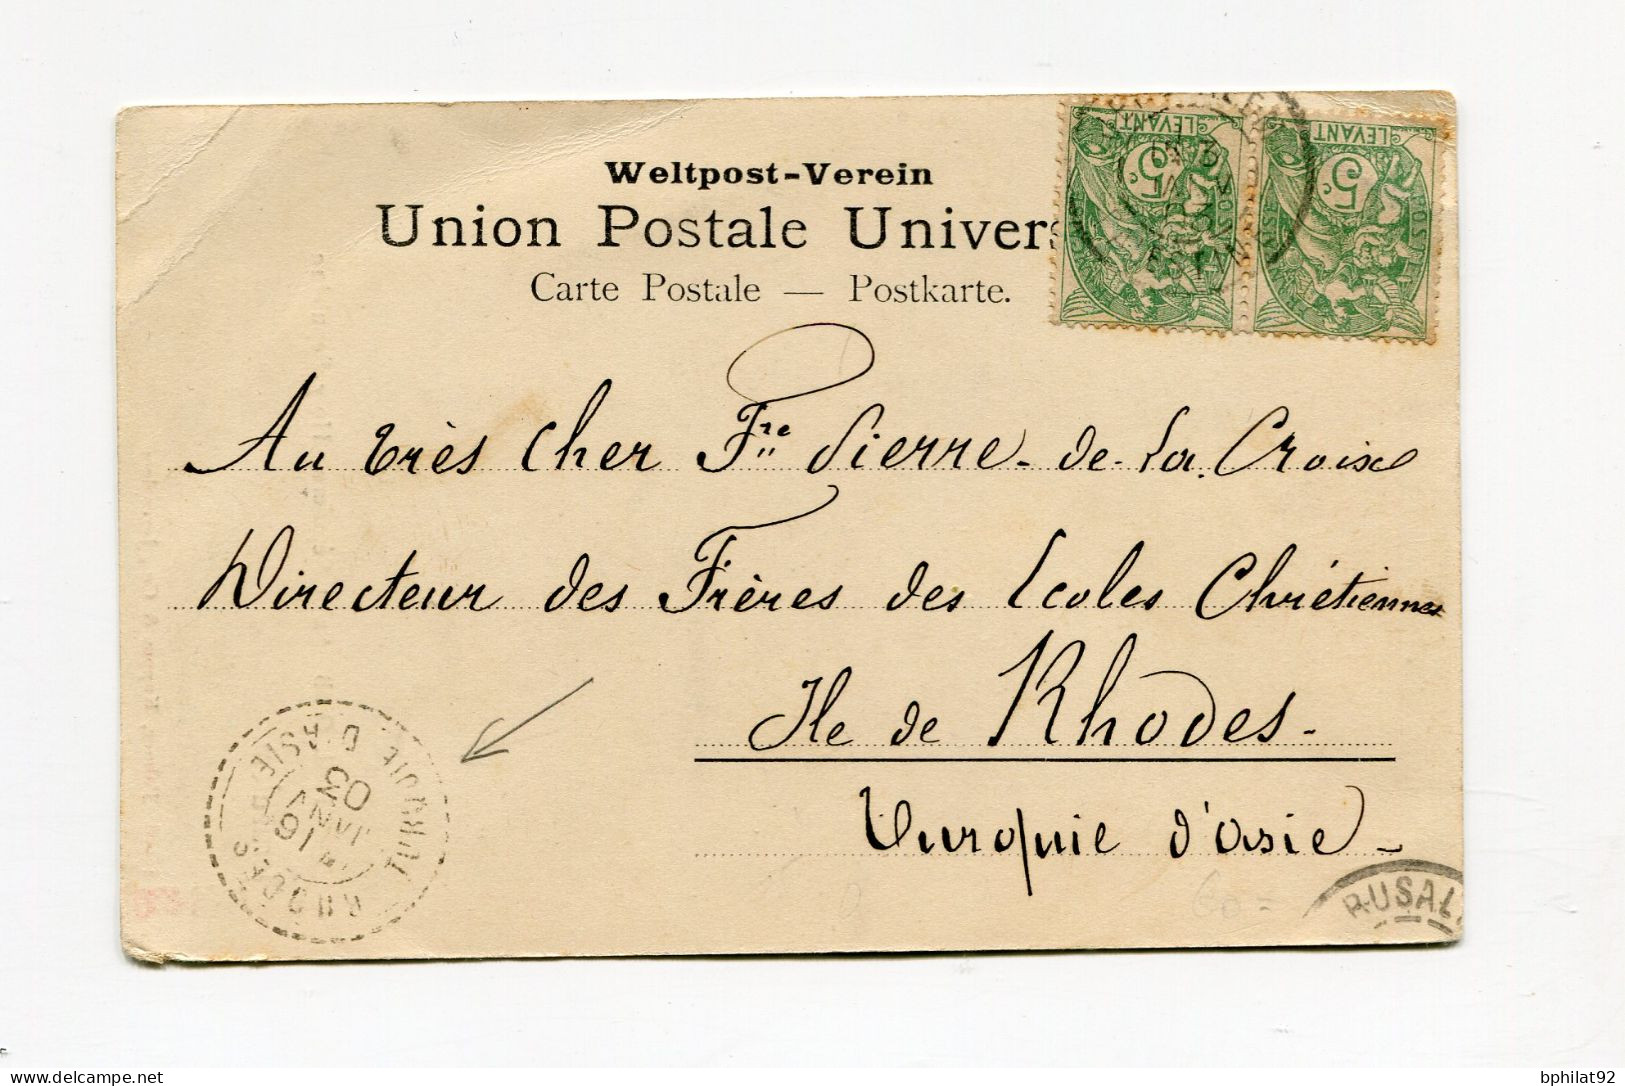 Weltpost-Verein
Union Postale Univers
Carte Postale — Postkarte.
LEVANT
5c
LEVANT
5c
Au très cher Fre Pierre-de-la-Croix
Directeur des Frères des Ecoles Chrétiennes
Ile de Rhodes-
Turquie d'asie-
RHODES
TURQUIE D'ASIE
16
JANV
03
RUSAL
bphilat92